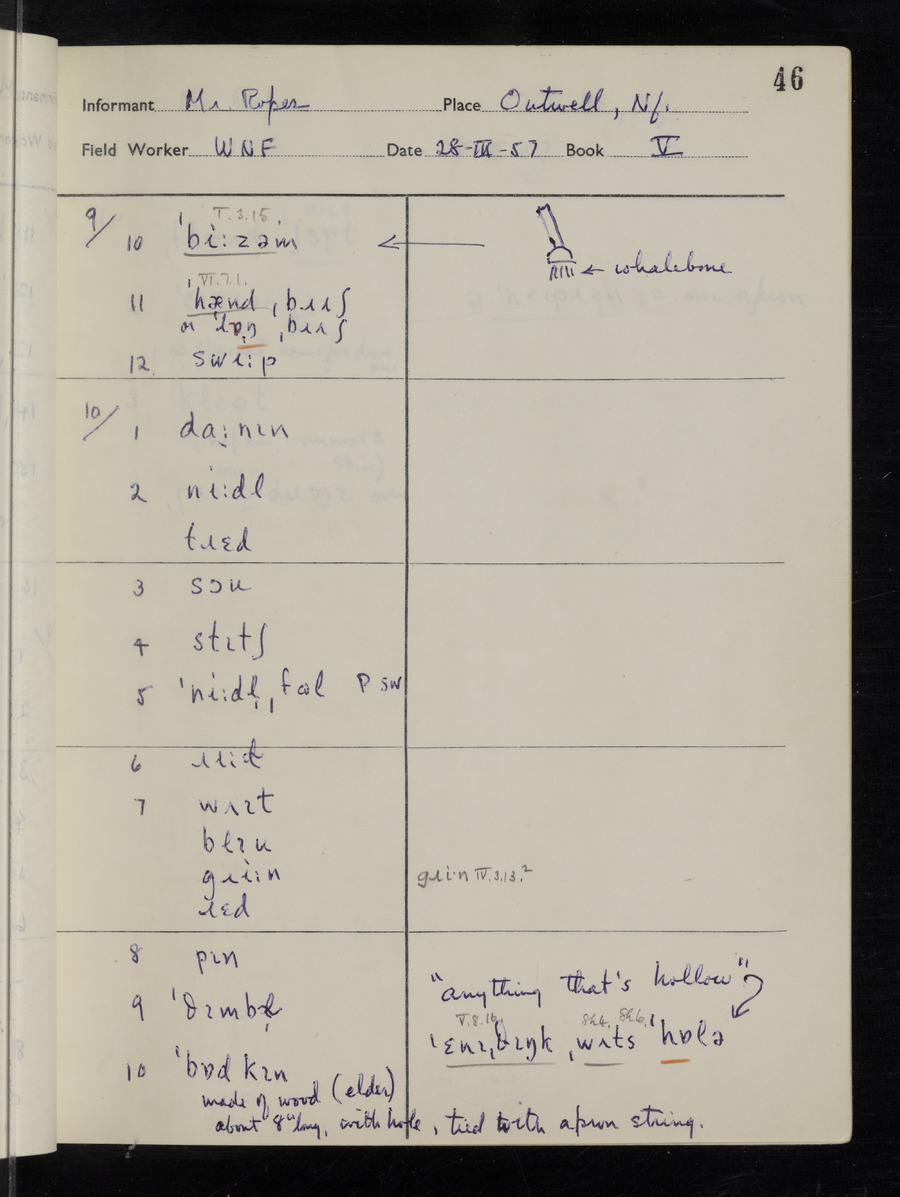 46
Informant Mr. Roper Place Outwell, Nf.
Field Worker WNF Date 28-III-57 Book V
9/ 10 ˈbiːzəm V.3.15. ← whalebone
11 ˈhænd ˌbɹɪʃ VI.7.1.
or ˈlɒŋ ˌbɹɪʃ
12. swiːp
10/ 1 daːnɪn
2 niːdl
tɹɛd
3 sɔu
4 stɪtʃ
5 ˈniːdl̩ˌfʊl P SW
6
7
bl
gɹiːn gɹiːn IV.3.13.²
ɹɛd
8 pɪn
"anything that's hollow"
9 ˈθɪmbl̩
V.8.16. Sh4. Sh6.
ˈɛnɪˌθɪŋk ˌwɪts ˈhɒlə
10 ˈbɒdkɪn
made of wood (elder)
about 8" long, with hole, tied with apron string.